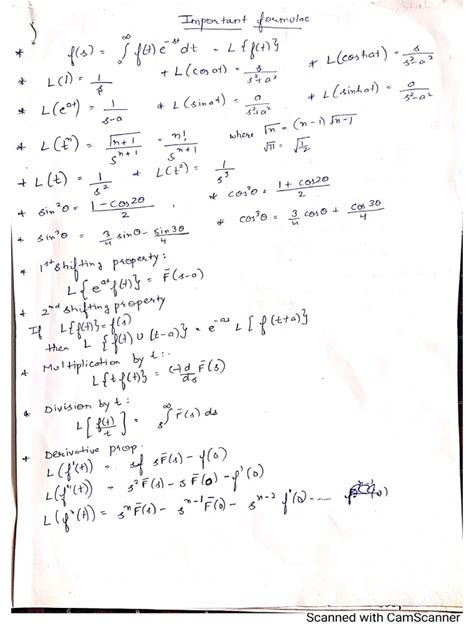 Important formulae
* f(s) = ∫₀^∞ f(t) e^-st dt = L{f(t)}
* L(1) = 1/s + L(cosat) = s/s²+a² * L(coshat) = s/s²-a²
* L(e^at) = 1/s-a * L(sinat) = a/s²+a² * L(sinhat) = a/s²-a²
* L(t^n) = √n+1/s^n+1 = n!/s^n+1 where √n = (n-1) √n-1
√π = √1/2
+ L(t) = 1/s² * L(t²) = 1/s³
* sin²θ = 1-cos2θ/2 * cos²θ = 1+cos2θ/2
* sin³θ = 3/4 sinθ - sin3θ/4 * cos³θ = 3/4 cosθ + cos3θ/4
* 1st shifting property:
L{e^at f(t)} = F̄(s-a)
* 2nd shifting property
If L{f(t)} = f(s)
then L {f(t) u(t-a)} = e^-as L[f(t+a)]
* Multiplication by t:.
L{t f(t)} = (-) d/ds F̄(s)
* Division by t:
L[f(t)/t] = s∫^∞ F̄(s) ds
* Derivative prop:
L(f'(t)) = sF̄(s) - f(0)
L(f''(t)) = s²F̄(s) - sF̄(0) - f'(0)
L(f^n(t)) = s^n F̄(s) - s^n-1 F̄(0) - s^n-2 f'(0) ---
Scanned with CamScanner